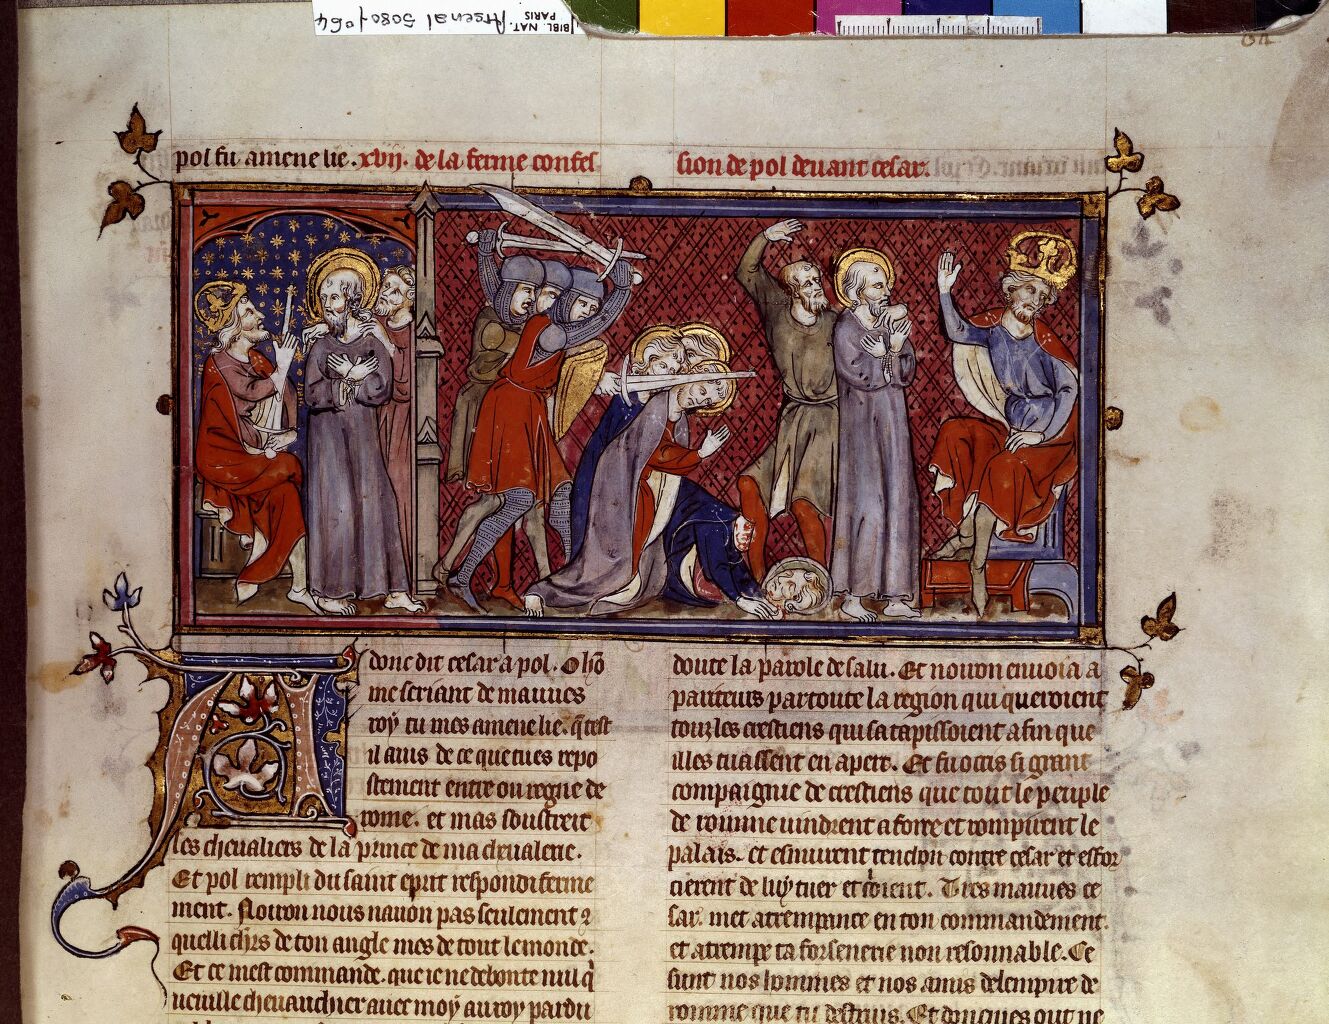 BIBL. NAT.
PARIS
Arsenal 5080 fº 64
pol fu amene lie. xvij. de la ferme confes
sion de pol deuant cesar.
Adonc dit cesar a pol. O hõ
me seriant de mauues
roy tu mes amene lie. q̃ test
il auis de ce que tu es repo
stement entre ou regne de
rome. et mas soustreit
les cheualiers de la prince de ma cheualerie.
Et pol rempli du saint esprit respondi ferme
ment. Noiron nous nauon pas seulement
quelli chrs de ton angle mes de tout le monde.
Et ce mest commande. que ie ne deboute nul q̃
ueuille cheuauchier auec moÿ au roy par du
doute la parole de salu. Et noiron enuoia a
par toute la region qui queroient
touz les crestiens qui sa tapissoient a fin que
illes tuassent en apert. Et fu occis si grant
compaignie de crestiens que tout le peuple
de romme uindrent a force et rompirent le
palais. et esmurent tencon contre cesar et effor
cierent de luÿ tuer et crioient. Tres mauues ce
sar. met atrempance en ton commandement.
et atrempe ta forsenerie non resonnable. Ce
sunt nos hommes et nos amis de lempire de
romme que tu destruis. Et donques out ne